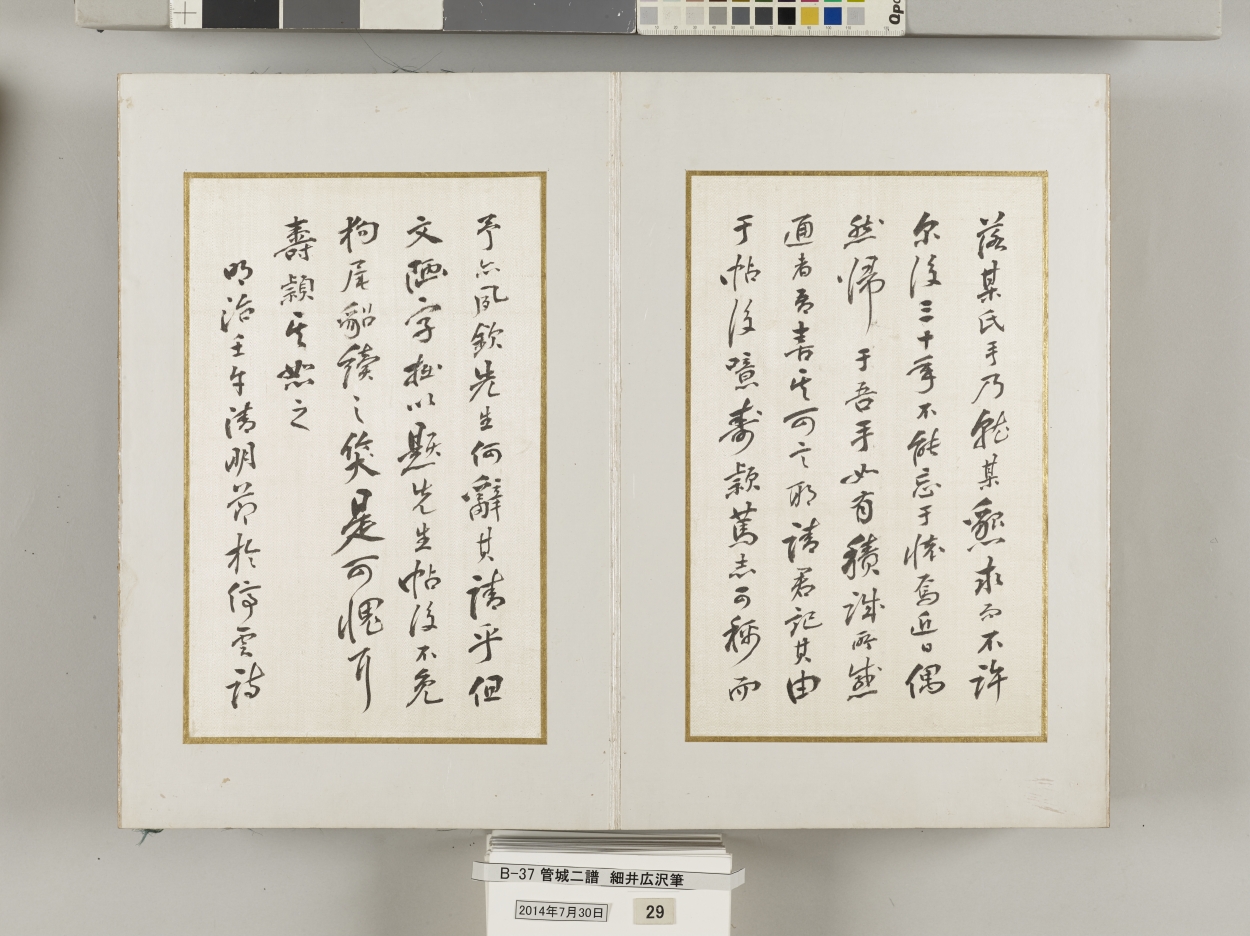 落某氏手乃就某懇求而不許
尔後三十年不能忘于懐焉近日偶
然帰于吾手如有積誠所感
通者吾喜其可言耶請君記其由
于帖後噫寿頴篤志可称而
予亦夙欽先生何辭其請乎但
文陋字拙以懸先生帖後不免
狗尾貂續之笑是可愧耳
壽頴其恕之
明治壬午清明節於停雲
B-37 管城二譜 細井広沢筆
2014年7月30日
29